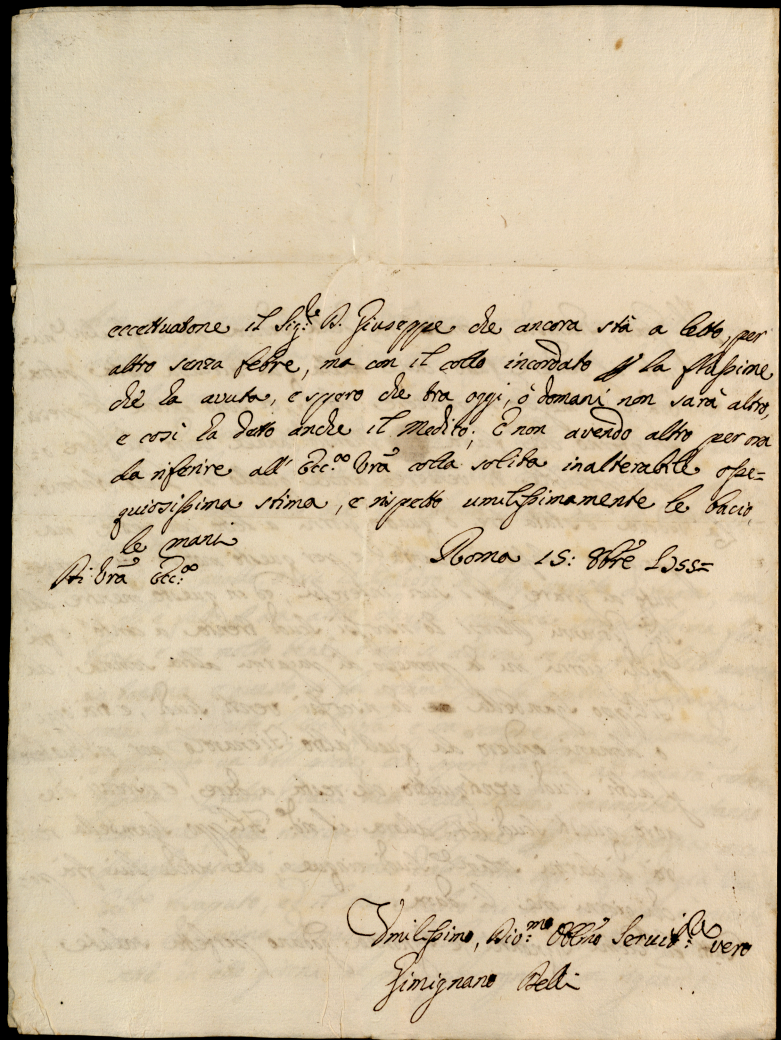 eccettuatone il Sig.re D. Giuseppe che ancora stà a letto, per
altro senza febre, ma con il collo incordato p la flussione
che ha avuta, e spero che tra oggi, ò domani non sarà altro,
e così ha detto anche il Medico; E non avendo altro per ora
da riferire all' Ecc.za Vrã colla solita inalterabile osse=
quiosissima stima, e rispetto umilissimamente le bacio
le mani
Di Vrã Ecc.za
Roma 15: 8bre 1755=
Umilissimo, Div.mo Obblmo Servit.re vero
Gimignano Belli